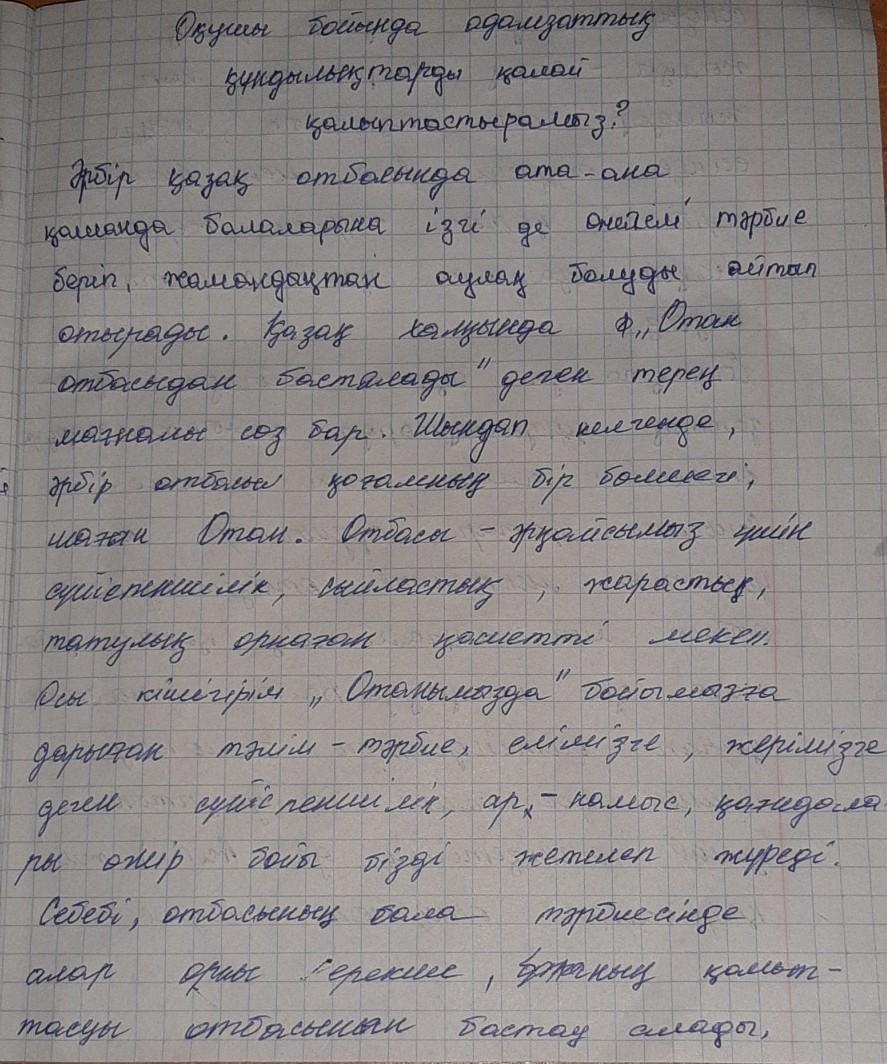 Оқушы бойында адамзаттық
құндылықтарды қалай
қалыптастырамыз?
Әрбір қазақ отбасында ата-ана
қашанда балаларына ізгі де өнегелі тәрбие
беріп, жамандықтан аулақ болуды айтып
отырады. Қазақ халқында „Отан
отбасыдан басталады" деген терең
мағналы сөз бар. Шындап келгенде,
әрбір отбасы қоғамның бір бөлшегі,
шағын Отан. Отбасы - әрқайсымыз үшін
сүйіспеншілік, сыйластық, жарастық,
татулық орнаған қасиетті мекен.
Осы кішігірім „Отанымызда" бойымызға
дарыған тәлім-тәрбие, елімізге, жерімізге
деген сүйіспеншілік, ар,-намыс, қағидала
ры өмір бойы бізді жетелеп жүреді.
Себебі, отбасының бала тәрбиесінде
алар орны ерекше, қалып-
тасуы отбасынан бастау алады,